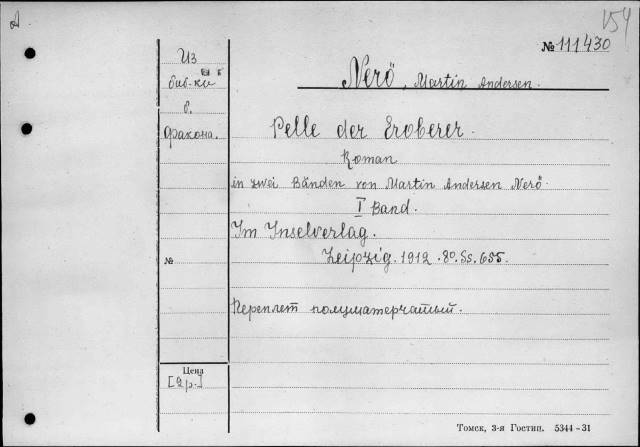 154
№ 111430
Из
биб-ки
в.
Фракона.
№
Цена
[2р.]
Nerö, Martin Andersen.
Pelle der Eroberer.
Roman
in zwei Bänden von Martin Andersen Nerö.
I Band.
Im Inselverlag.
Leipzig. 1912. 8o. Ss. 655.
Переплет полуматерчатый.
Томск, 3-я Гостип. 5344-31